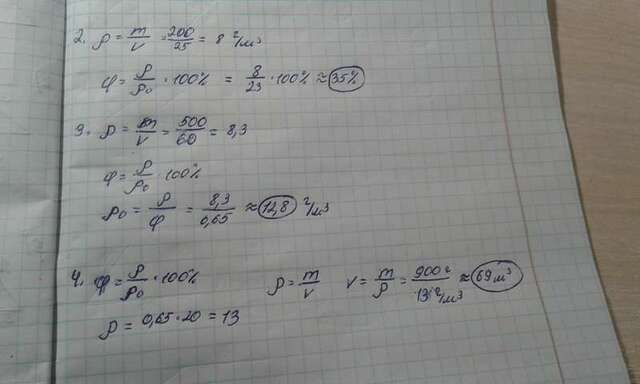 2. ρ = m/V = 200/25 = 8 г/м³
φ = ρ/ρ₀ · 100% = 8/23 · 100% ≈ 35%
3. ρ = m/V = 500/60 = 8,3
φ = ρ/ρ₀ · 100%
ρ₀ = ρ/φ = 8,3/0,65 ≈ 12,8 г/м³
4. φ = ρ/ρ₀ · 100% ρ = m/V V = m/ρ = 900г/13 г/м³ ≈ 69 м³
ρ = 0,65 · 20 = 13